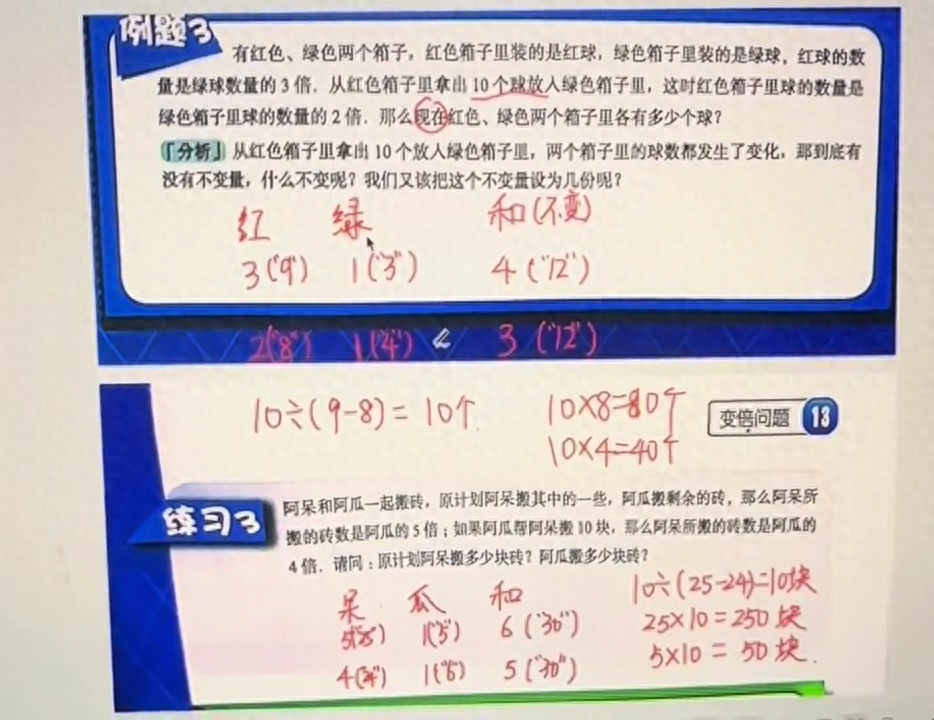 例题3
有红色、绿色两个箱子，红色箱子里装的是红球，绿色箱子里装的是绿球，红球的数
量是绿球数量的3倍．从红色箱子里拿出10个球放人绿色箱子里，这时红色箱子里球的数量是
绿色箱子里球的数量的2倍．那么现在红色、绿色两个箱子里各有多少个球？
「分析」从红色箱子里拿出10个放人绿色箱子里，两个箱子里的球数都发生了变化，那到底有
没有不变量，什么不变呢？我们又该把这个不变量设为几份呢？
红 绿 和(不变)
3("9") 1("3") 4("12")
2("8") 1("4") 3("12")
10÷(9-8)=10个
10×8=80个
10×4=40个
变倍问题 13
练习3
阿呆和阿瓜一起搬砖，原计划阿呆搬其中的一些，阿瓜搬剩余的砖，那么阿呆所
搬的砖数是阿瓜的5倍；如果阿瓜帮阿呆搬10块，那么阿呆所搬的砖数是阿瓜的
4倍．请问：原计划阿呆搬多少块砖？阿瓜搬多少块砖？
呆 瓜 和
5("25") 1("5") 6("30")
4("24") 1("6") 5("30")
10÷(25-24)=10块
25×10=250块
5×10=50块.